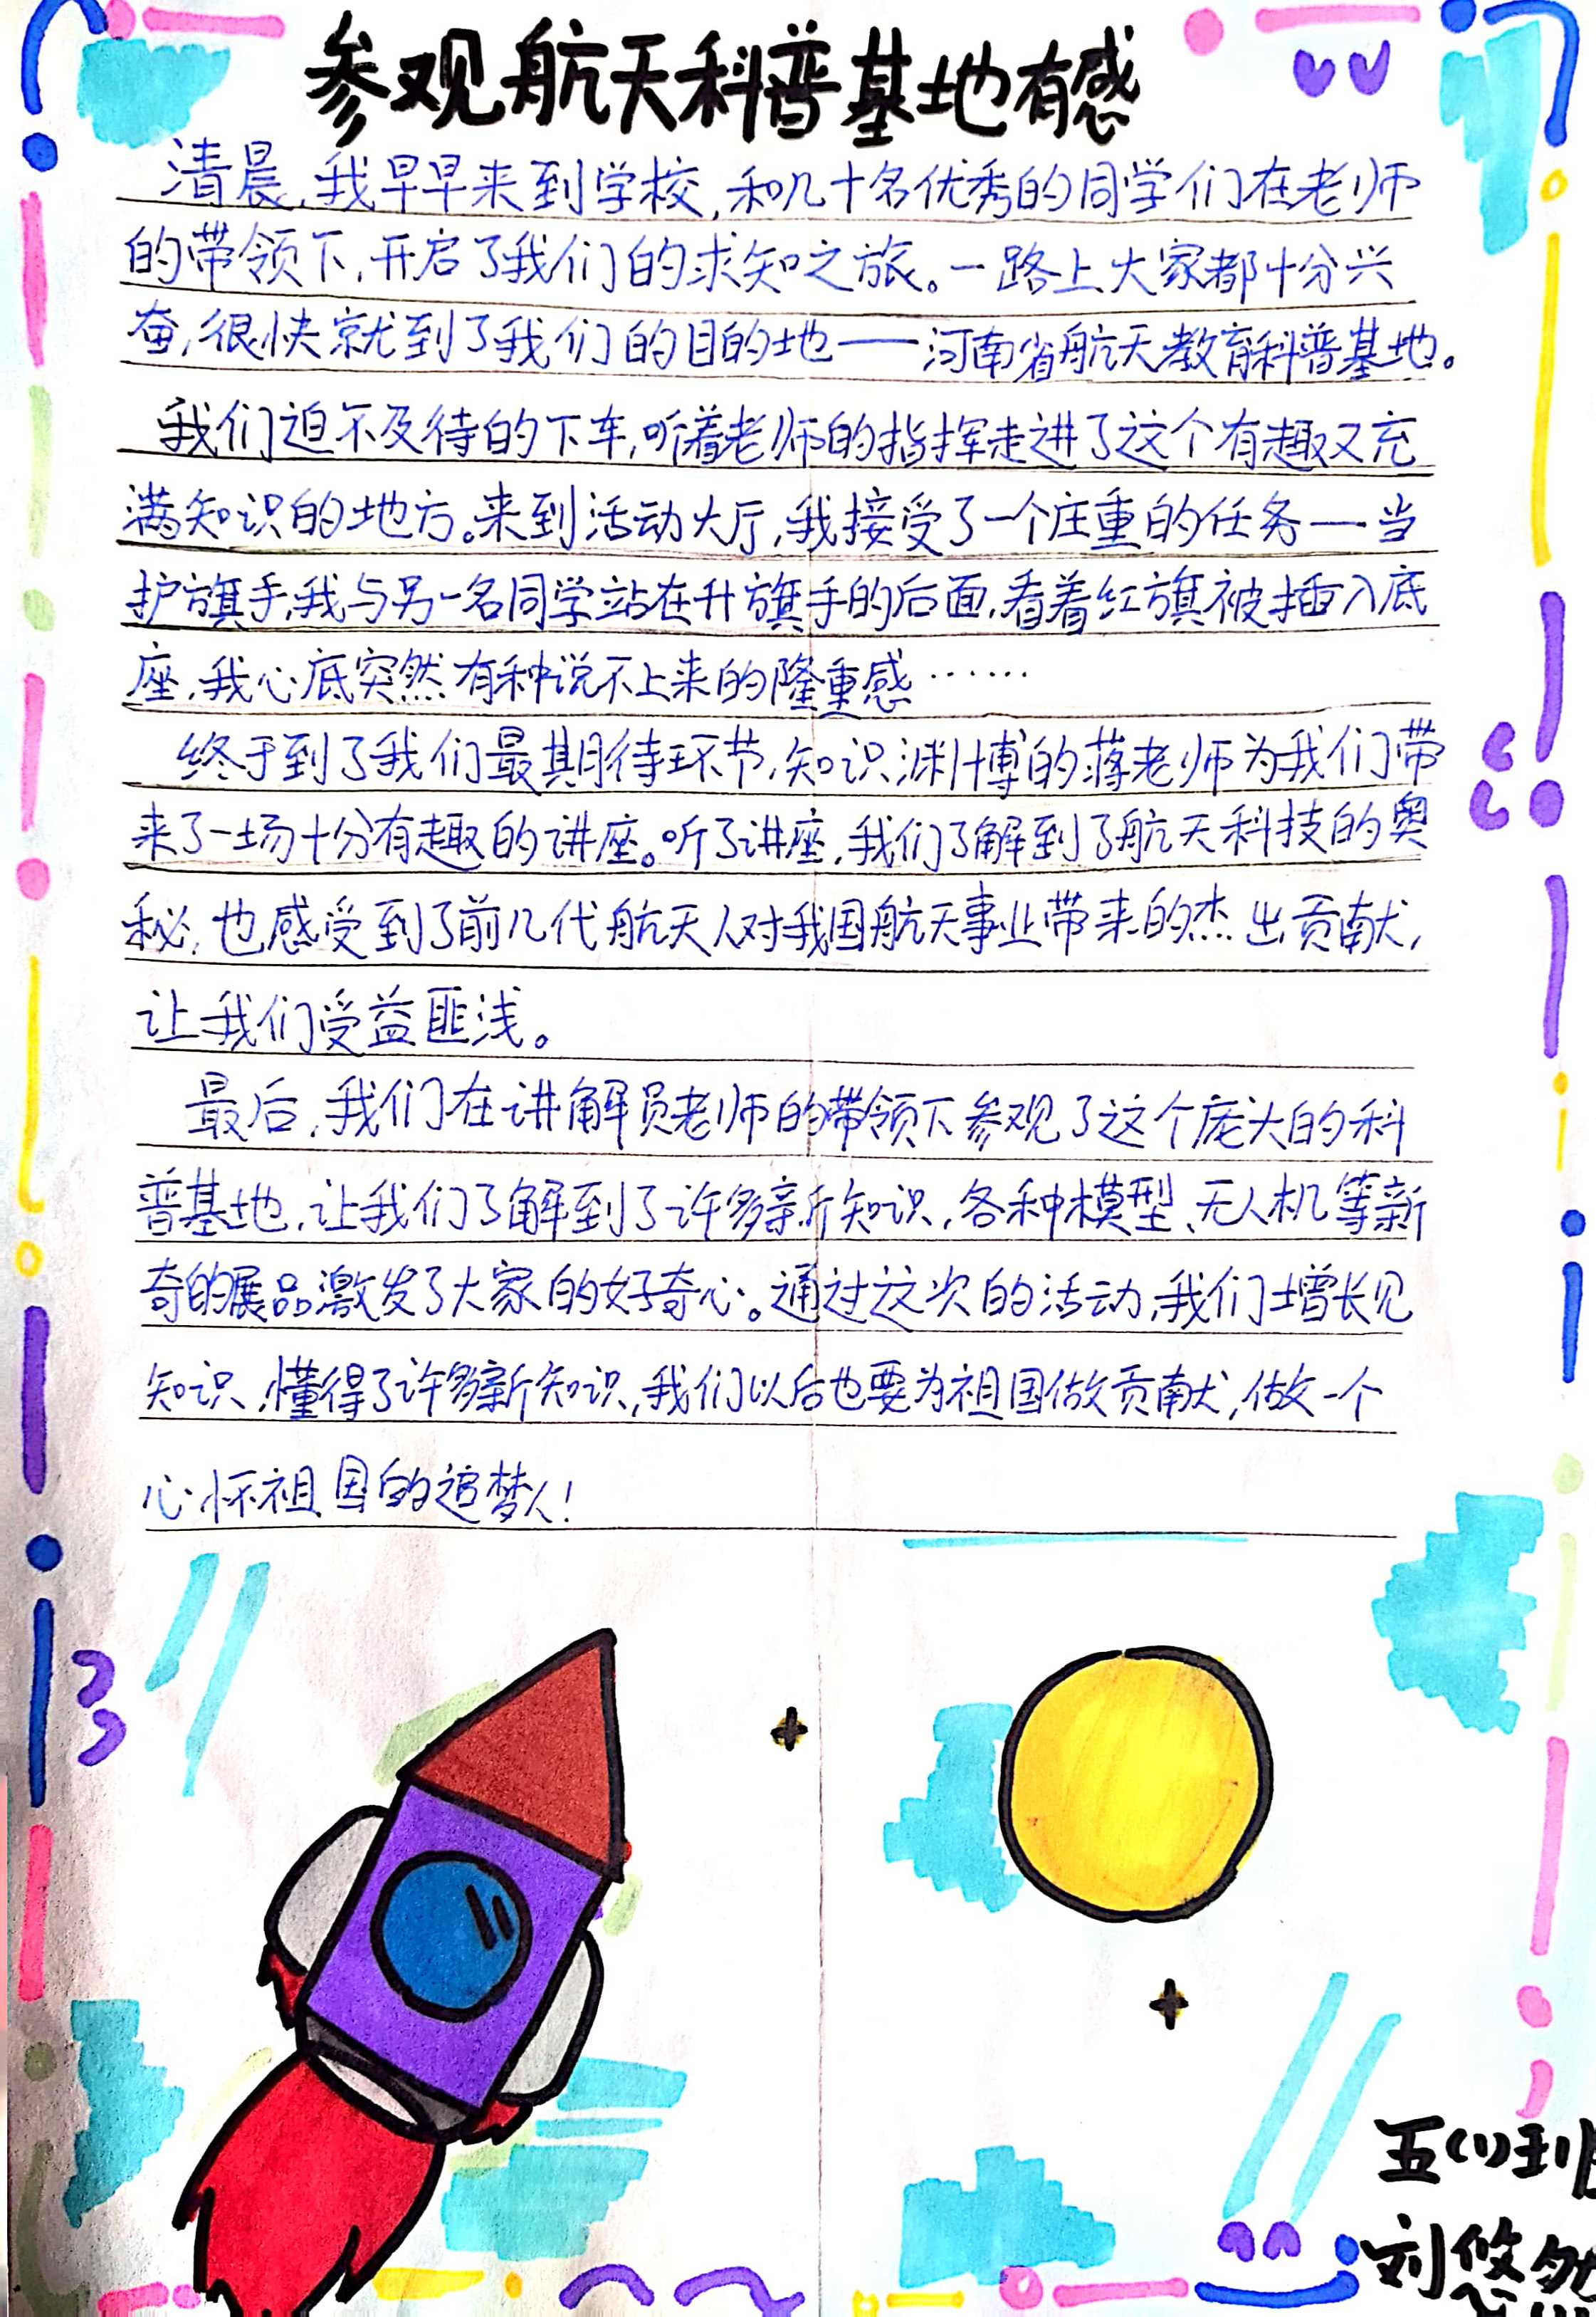 参观航天科普基地有感
清晨,我早早来到学校,和几十名优秀的同学们在老师
的带领下,开启了我们的求知之旅。一路上大家都十分兴
奋,很快就到了我们的目的地——河南省航天教育科普基地。
我们迫不及待的下车,听着老师的指挥走进了这个有趣又充
满知识的地方。来到活动大厅,我接受了一个庄重的任务—当
护旗手,我与另一名同学站在升旗手的后面,看着红旗被插入底
座,我心底突然有种说不上来的隆重感……
终于到了我们最期待环节,知识渊博的蒋老师为我们带
来了一场十分有趣的讲座。听了讲座,我们了解到了航天科技的奥
秘,也感受到了前几代航天人对我国航天事业带来的杰出贡献,
让我们受益匪浅。
最后,我们在讲解员老师的带领下参观了这个庞大的科
普基地,让我们了解到了许多新知识,各种模型、无人机等新
奇的展品激发了大家的好奇心。通过这次的活动,我们增长见
知识,懂得了许多新知识,我们以后也要为祖国做贡献,做一个
心怀祖国的追梦人!
五(1)班
刘悠然